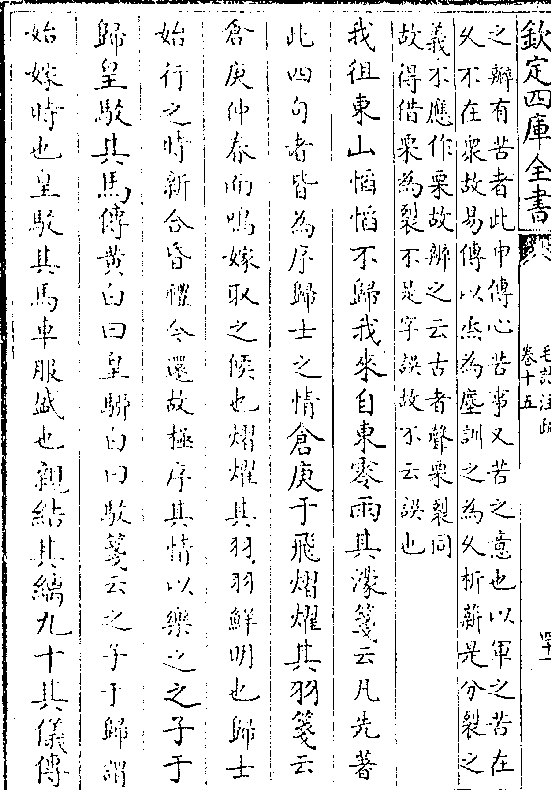 欽定四庫全書
毛詩注疏
卷十五
之辦有苦者此申傳心苦事又苦之意也以軍之苦在
久不在衆故易傳以烝為塵訓之為久析薪是分裂之
義不應作栗故辦之云古者聲栗裂同
故得借栗為裂不是字誤故不云誤也
我徂東山慆慆不歸我來自東零雨其濛箋云凡先著
此四句者皆為序歸士之情倉庚于飛熠燿其羽箋云
倉庚仲春而鳴嫁取之候也熠燿其羽羽鮮明也歸士
始行之時新合昏禮今還故極序其情以樂之之子于
歸皇駁其馬傳黄白曰皇駵白曰駁箋云之子于歸謂
始嫁時也皇駁其馬車服盛也親結其縭九十其儀傳